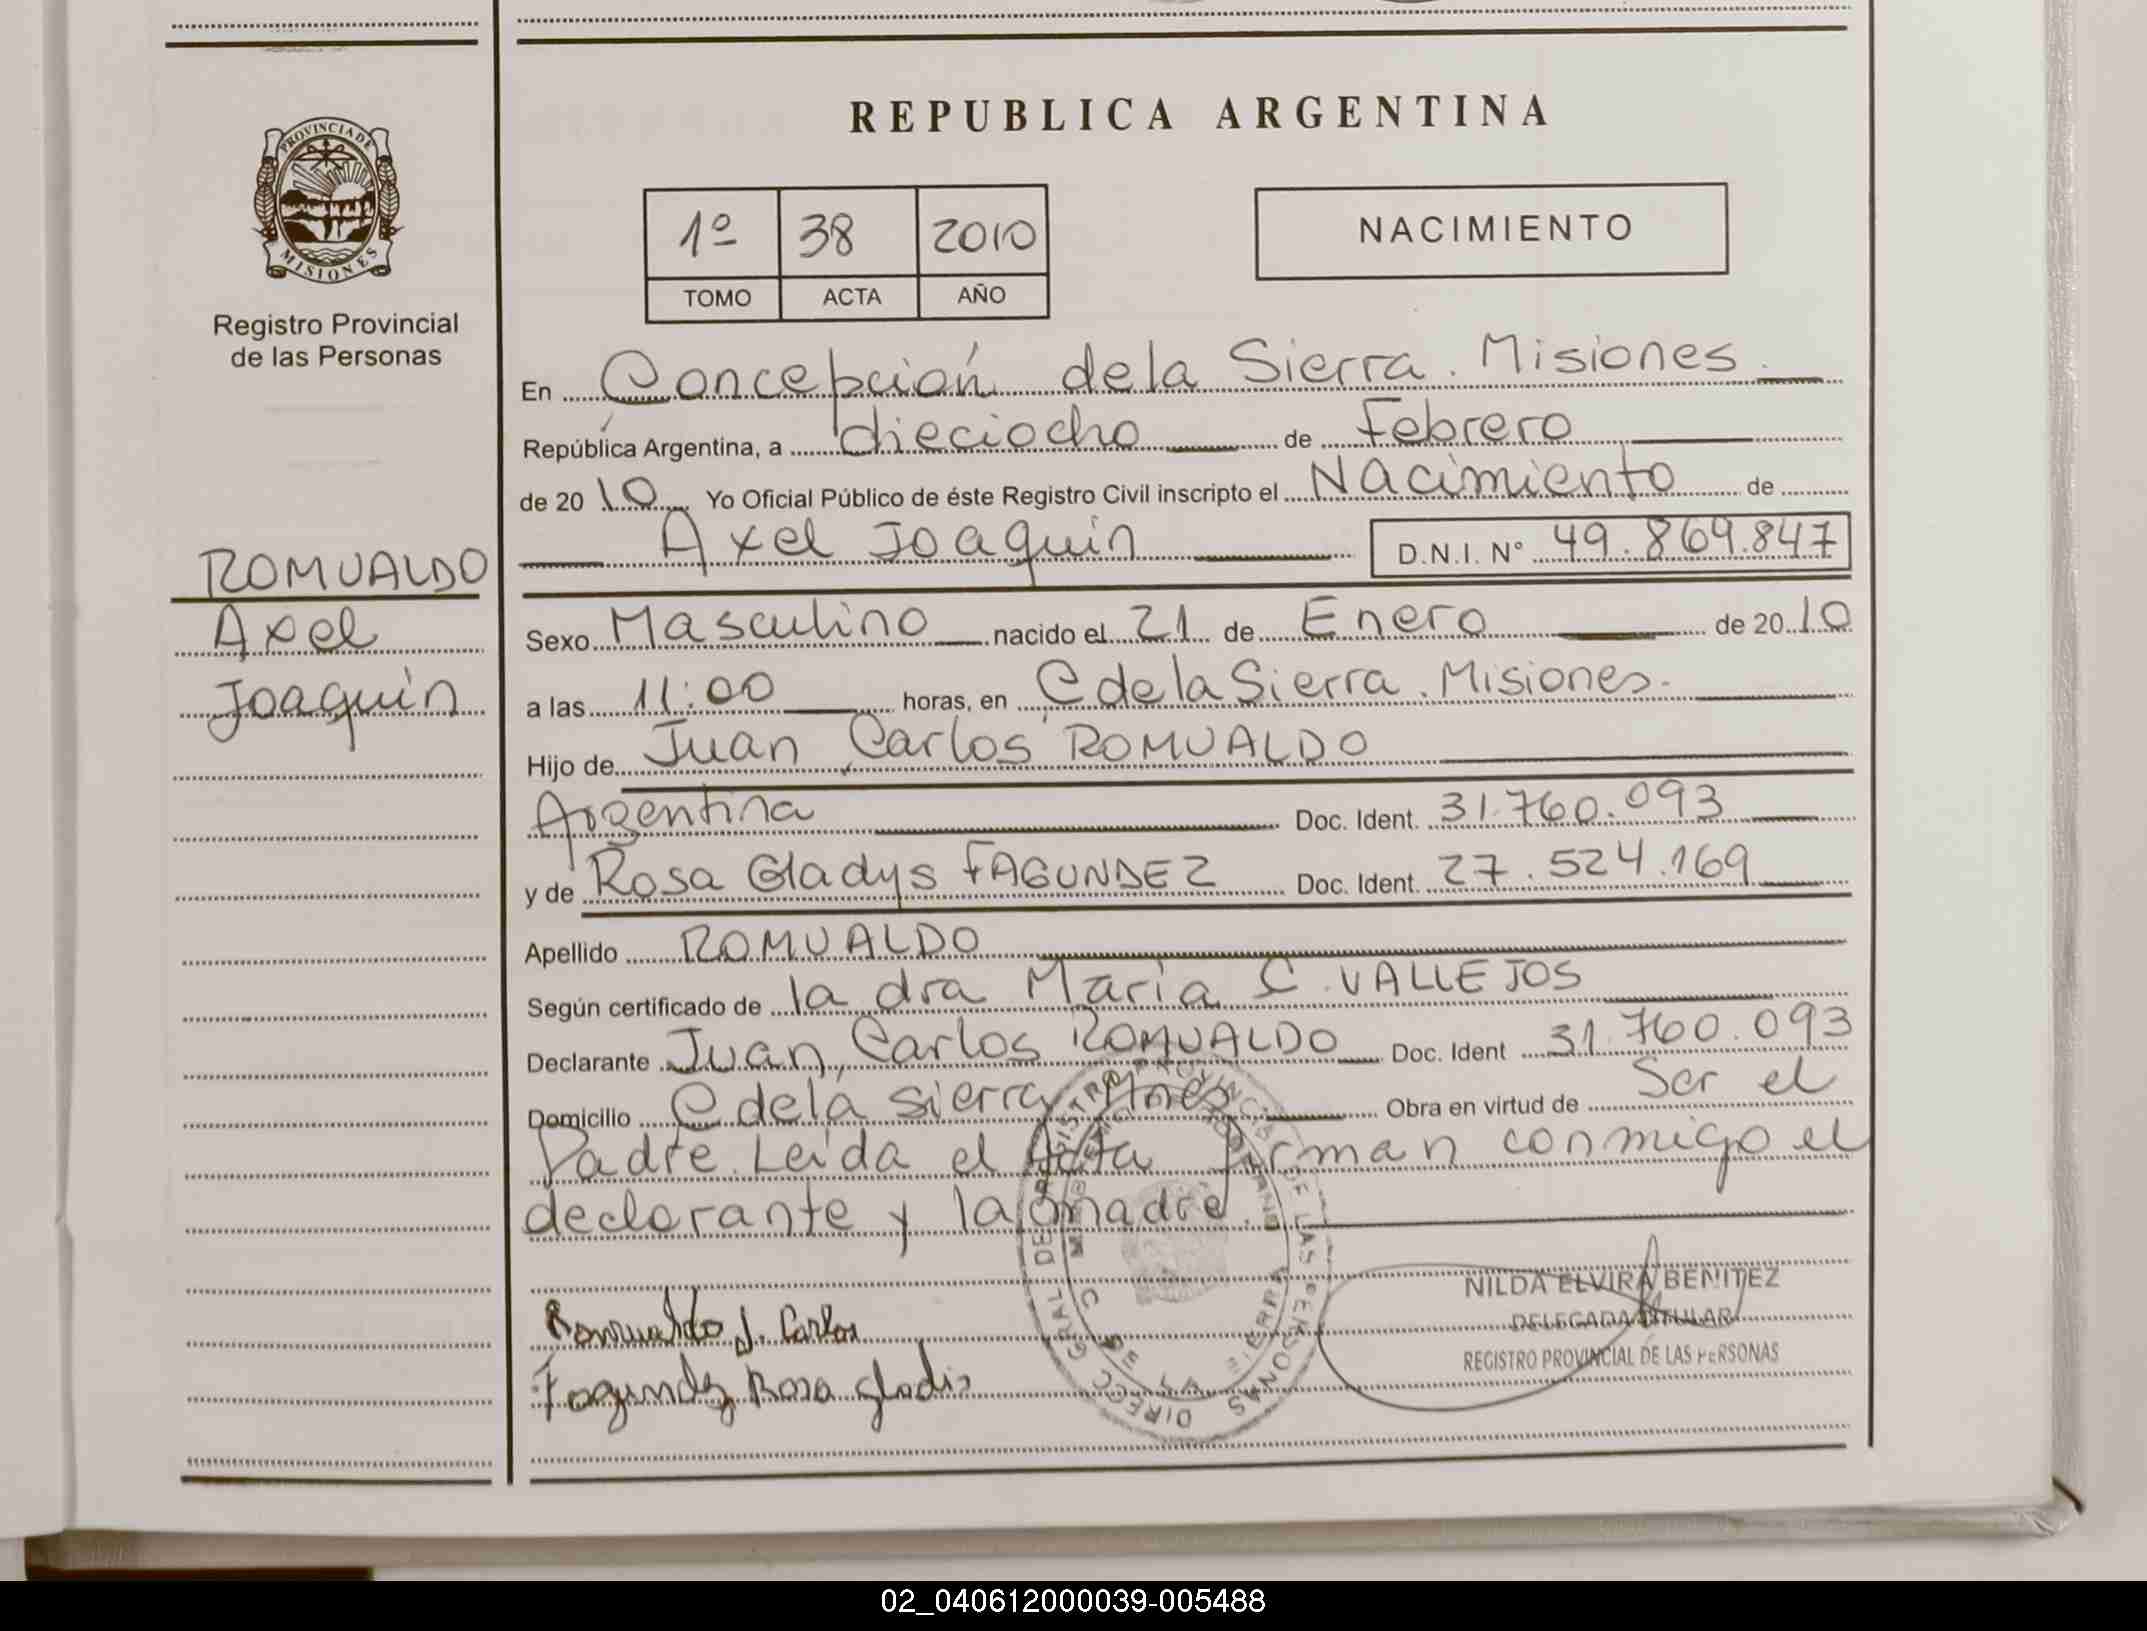 REPUBLICA ARGENTINA
PROVINCIA DE
MISIONES
Registro Provincial
de las Personas
1º 38 2010
TOMO ACTA AÑO
NACIMIENTO
En Concepción de la Sierra. Misiones.
República Argentina, a dieciocho de Febrero
de 2010 Yo Oficial Público de éste Registro Civil inscripto el Nacimiento de
Axel Joaquín D.N.I. Nº 49.869.847
ROMUALDO
Axel
Joaquín
Sexo Masculino nacido el 21 de Enero de 2010
a las 11:00 horas, en C de la Sierra. Misiones.
Hijo de Juan Carlos ROMUALDO
Argentina Doc. Ident. 31.760.093
y de Rosa Gladys FAGUNDEZ Doc. Ident. 27.524.169
Apellido ROMUALDO
Según certificado de la dra María C. VALLEJOS
Declarante Juan Carlos ROMUALDO Doc. Ident 31.760.093
Domicilio C de la Sierra Mnes Obra en virtud de Ser el
Padre. Leída el Acta firman conmigo el
declarante y la madre.
Romualdo J. Carlos
Fagundez Rosa gladis
NILDA ELVIRA BENITEZ
DELEGADA TITULAR
REGISTRO PROVINCIAL DE LAS PERSONAS
02_040612000039-005488